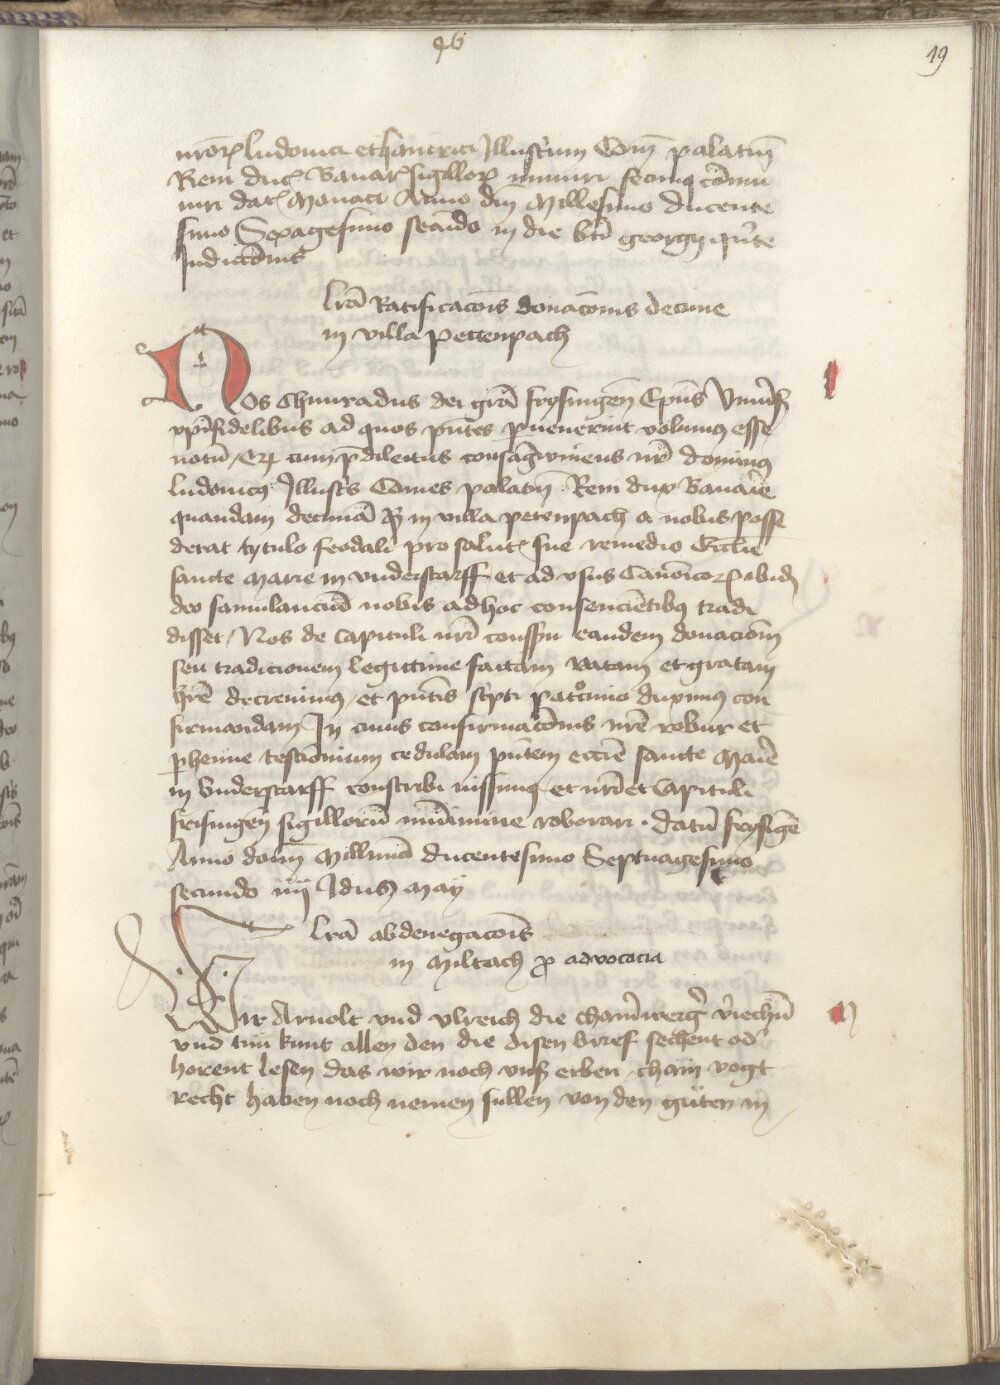 96
49
nr̄orꝝ ludouici et hainrici Illustrium Com̄ palatin̄
Reni duc̄ Bauarꝝ sigillorꝝ muniri fecimꝰ cōmu
niri dat̄ Monaci Anno dn̄i Millesimo ducente
simo Sexagesimo secūdo in die bt̄i georgij qⁱnte
Indicc̄onis
lr̄a Ratificac̄ois donac̄onis decime
in villa pettenpach
NOs Chunradus dei gr̄a frysingen̄ Ep̄us Vniu̓s
xp̄i fidelibus ad quos pn̄tes p̱uenerint volumꝰ esse
notū cum p̄dilectus consāgwineus nr̄ dominꝰ
ludonicꝰ Illustris Comes palatin̄ Reni dux Bauarie
quandam decimā in villa petenpach a nobis posse
derat tytulo feodali pro salut̄ sue remedio Eccl̄ie
sancte Marie in vnderstorff et ad vsus Canōicorꝝ ibid̄
deo famulanciū nobis ad hoc consencientibꝰ tradi
disset / Nos de Capituli nr̄i conss̄u eandem donaciom̄
seu tradicionem legittime factam ratam et gratam
hr̄e decreuimꝰ et pn̄tis sc̓pti pat°cinio duximꝰ con
firmandam In cuius confirmac̄onis nr̄e robur et
p̱henne testīonium cedulam pn̄tem ecc̄ie sancte Marie
in Vnderstorff conscribi iussimꝰ et nr̄i et Capituli
frisingen̄ sigillorū munimine roborari · datū frysīgē
Anno domi̅ Mill̅mo ducentesimo Septuagesimo
secundo iiij Idus May
lr̄a abdenegac̄ois
in Miltach ꝓ aduocacia
Wir Arnolt vnd vlreich die v̓iechn̄
vnd tun kunt allen den die disen brief sechent od̓
horent lesen das wir noch vns̓ erben chain vogt
recht haben noch nemen sullen von den güten in